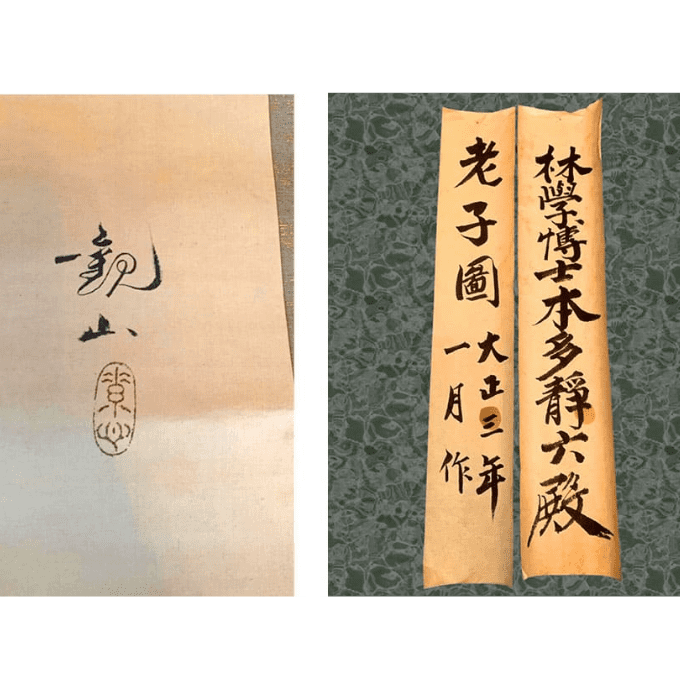 觀山
林學博士本多靜六殿
老子圖
大正三年
一月作